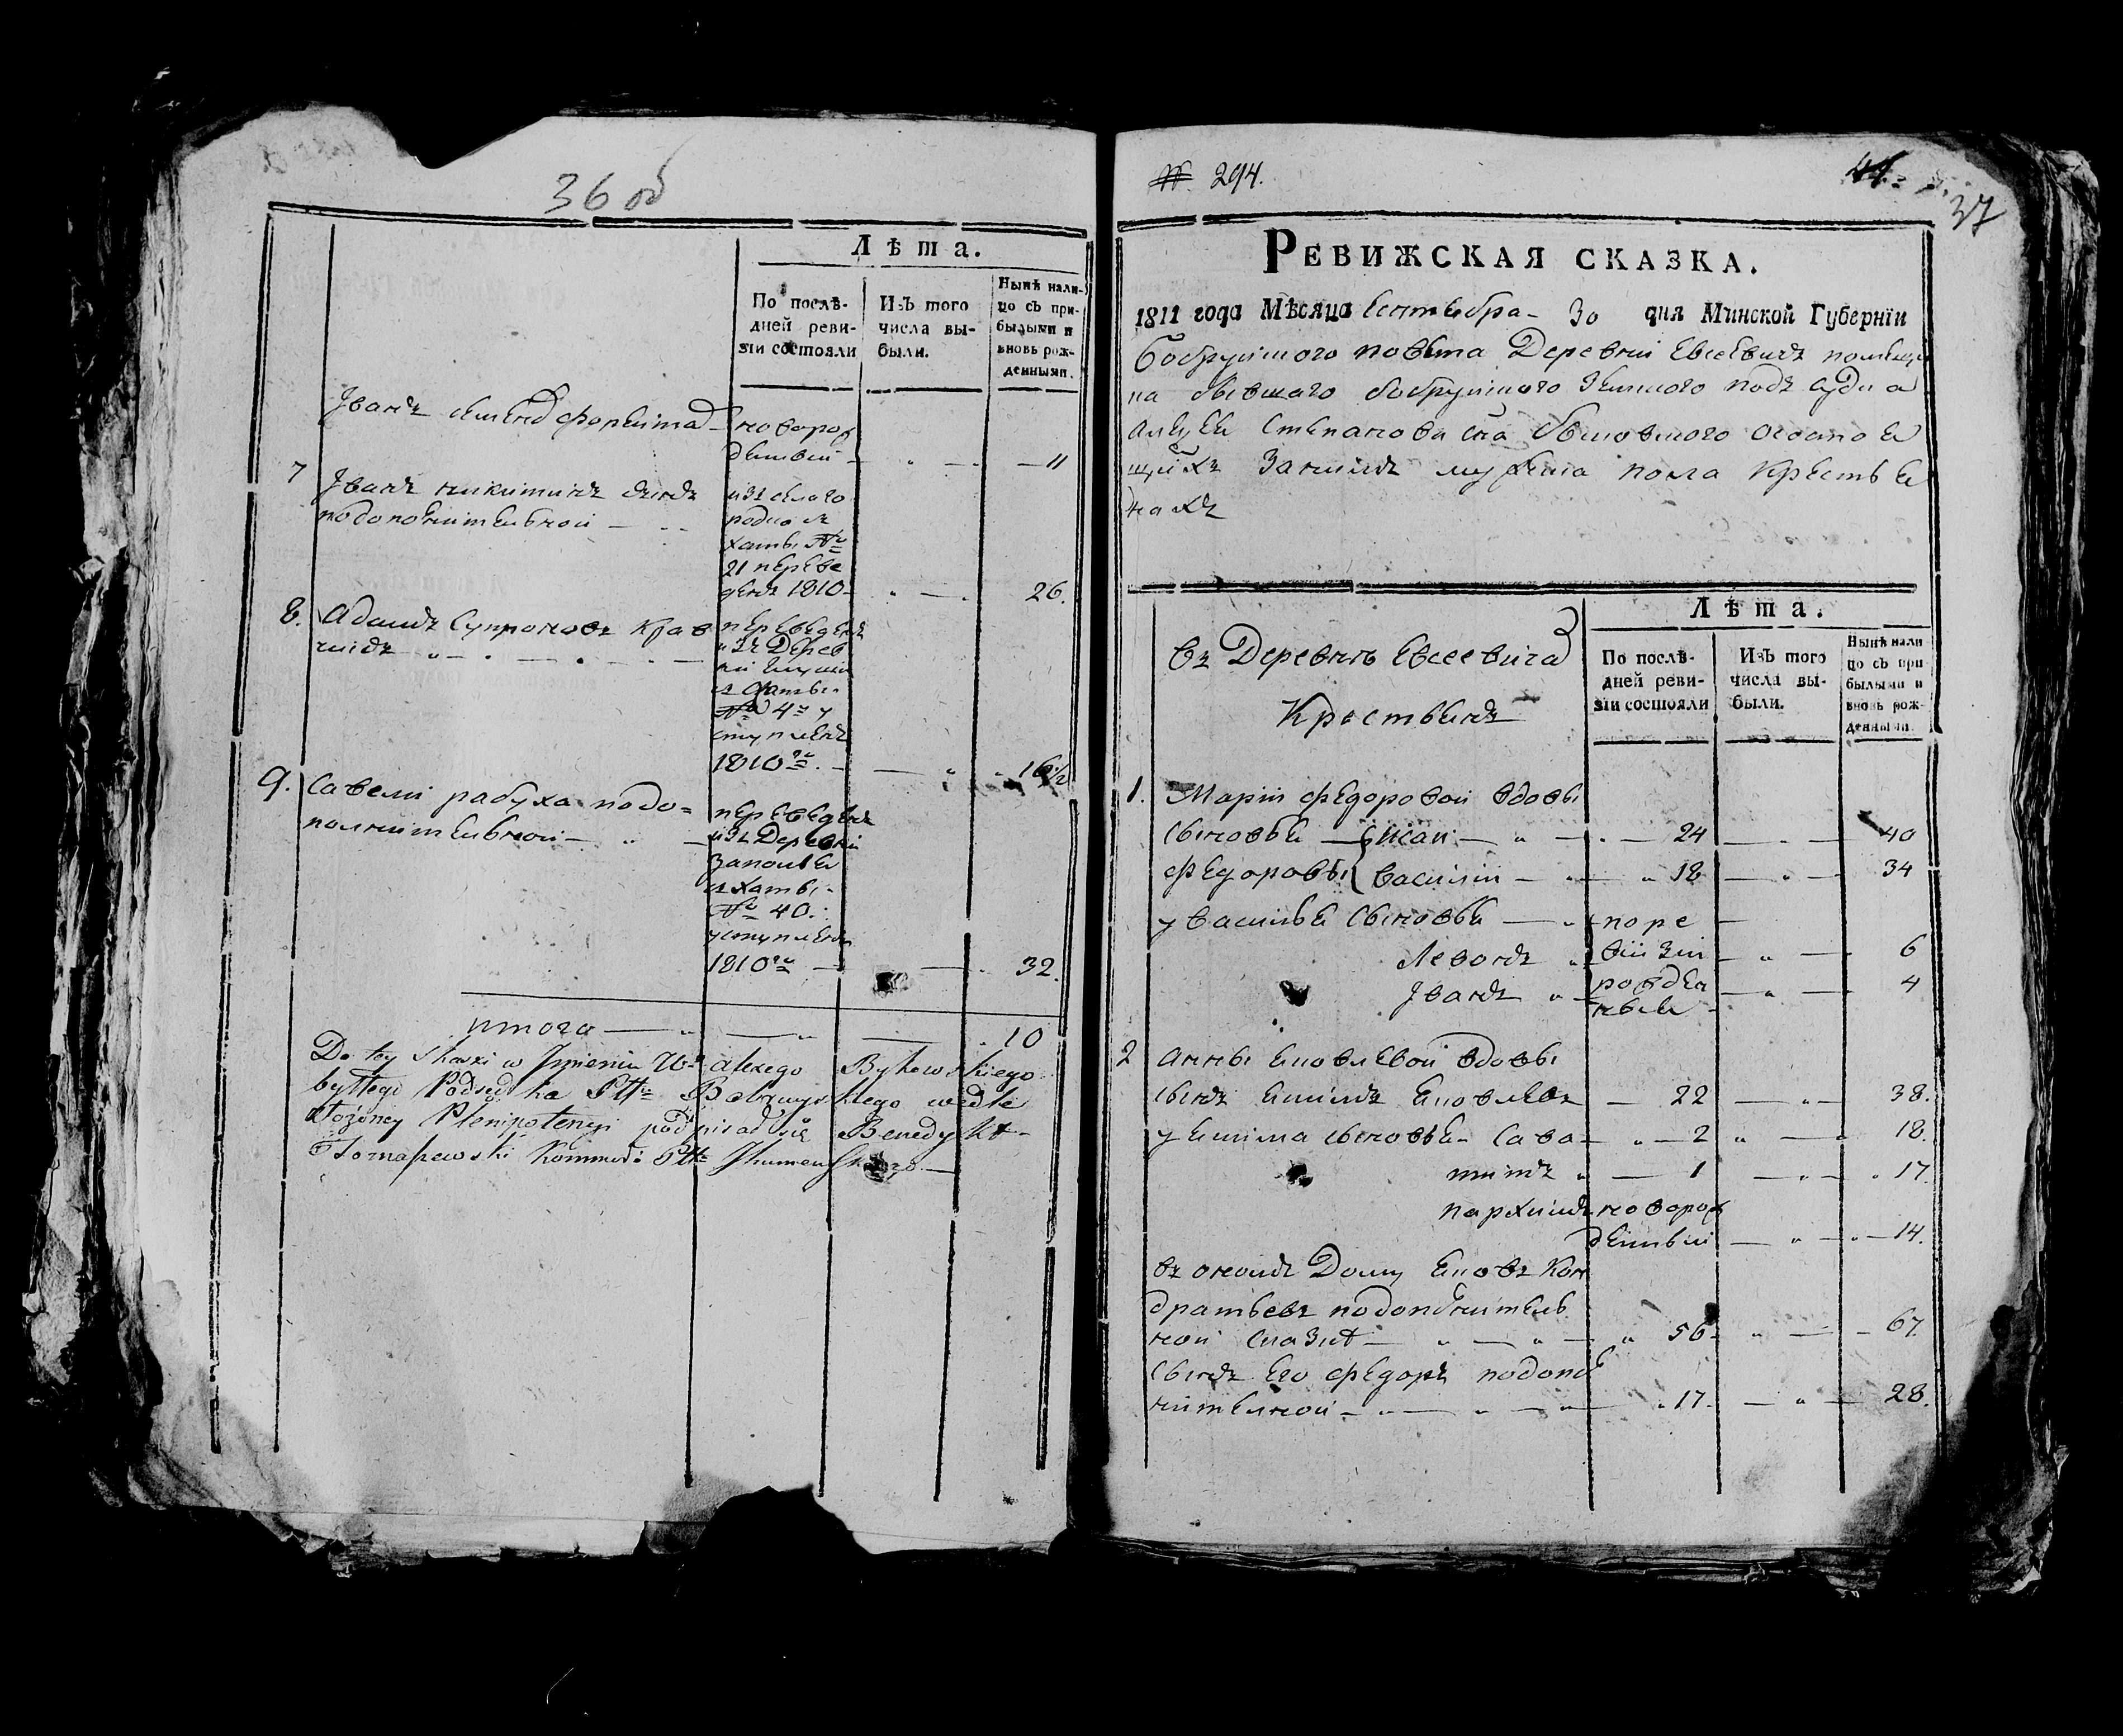 36 об
Лѣта.
По послѣ-
дней реви-
зіи состояли
Изъ того
числа вы-
были.
Нынѣ нали-
цо съ при-
былыми и
вновь рож-
денными.
Іванъ
новорож
денный 11
7 Іванъ никитинъ сынъ
изъ
родно
хаты №
21 переве
денъ 1810 26.
8. Адамъ Супроновъ Крав
чикъ
переведенъ
изъ Дерев
ни
хаты
№ 4
уступленъ
1810 16 1/2
9. Савелий рабуха подо-
полнительной
переведенъ
изъ Деревни
хаты
№ 40.
уступленъ
1810 32.
итого 10
Do tey skazki w Jmieniu W° alexego Bykowskiego
byłłego Podsędka Ptt° Bobruyskiego wedle
Plenipotencyi podpisał się Benedykt
Tomaszewski
№ 294.
41.
37
Ревижская сказка.
1811 года Мѣсяца Сентебра 30 дня Минской Губерніи
Бобруйского повета Деревни Евсевичъ помещи
ка бывшаго бобруйского земского подъ судка
Алецея Степанова сна быковского о состое
щихъ Занимъ мужеска пола Крестье
нахъ
Лѣта.
въ Деревнѣ Евсеевича
Крестьянъ
По послѣ-
дней реви-
зіи состояли
Изъ того
числа вы-
были.
Нынѣ нали
цо съ при
былыми и
вновь рож-
денными.
1. Маріи федоровой вдовы
сыновьи 24 40
федоровы Василій 18 34
у Василья сыновьи поре
Левонъ визіи 6
Іванъ рожден
ные 4
2 Анны Еновлевой вдовы
сынъ Екимъ Ековлевъ 22 38.
у Екима сыновьи Сава 2 18.
титъ 1 17.
пархимъ новорож
денный 14.
въ ономъ Дому Ековъ Кон
дратьевъ подополнитель
ной сказке 56 67
сынъ Его федоръ подопол
нителной 17. 28.